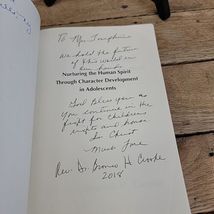 To Ms. Josephine
We hold the future
of this world in
our hands
Nurturing the Human Spirit
Through Character Development
in Adolescents
God Bless you as
you continue in the
fight for children's
rights and
In Christ
Much Love
Rev. Dr. H.
2018